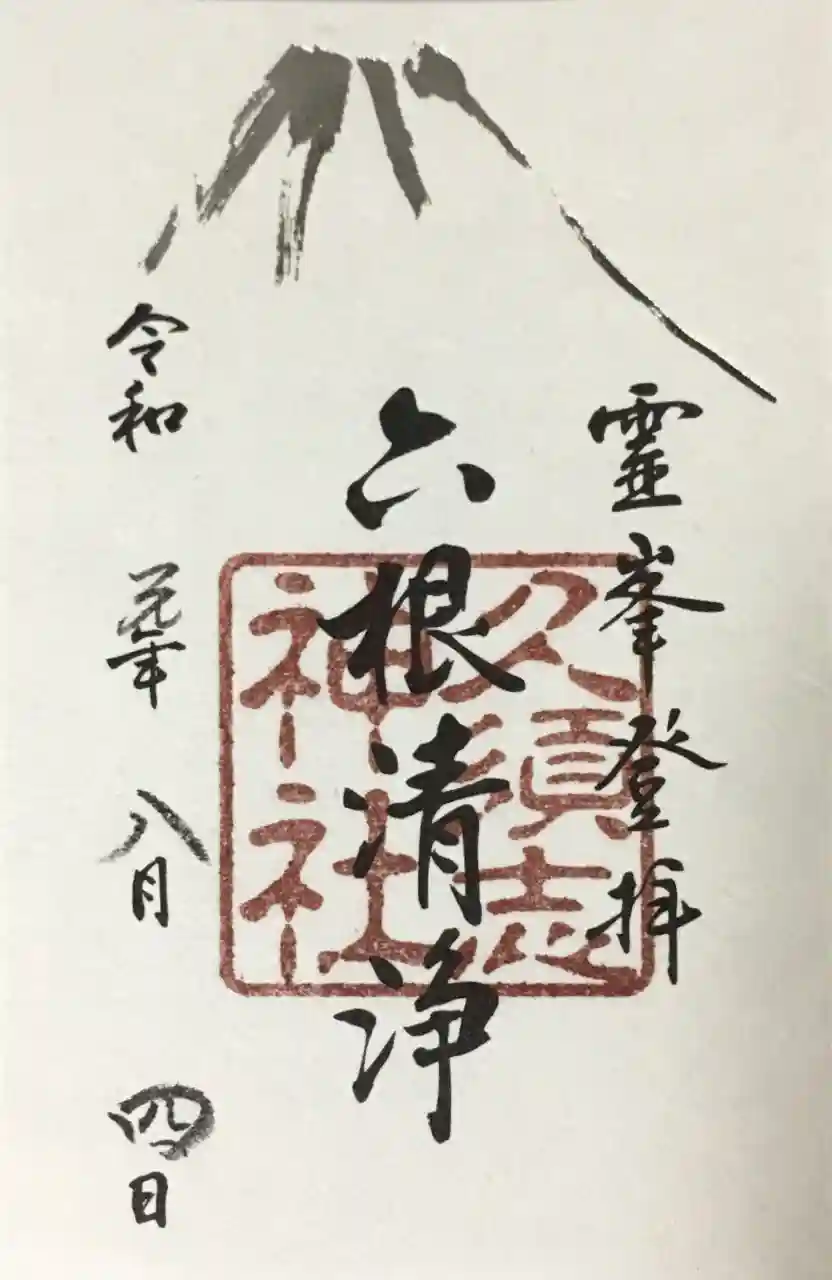 靈峯登拝
六根清浄
久須志
神社
令和元年八月四日